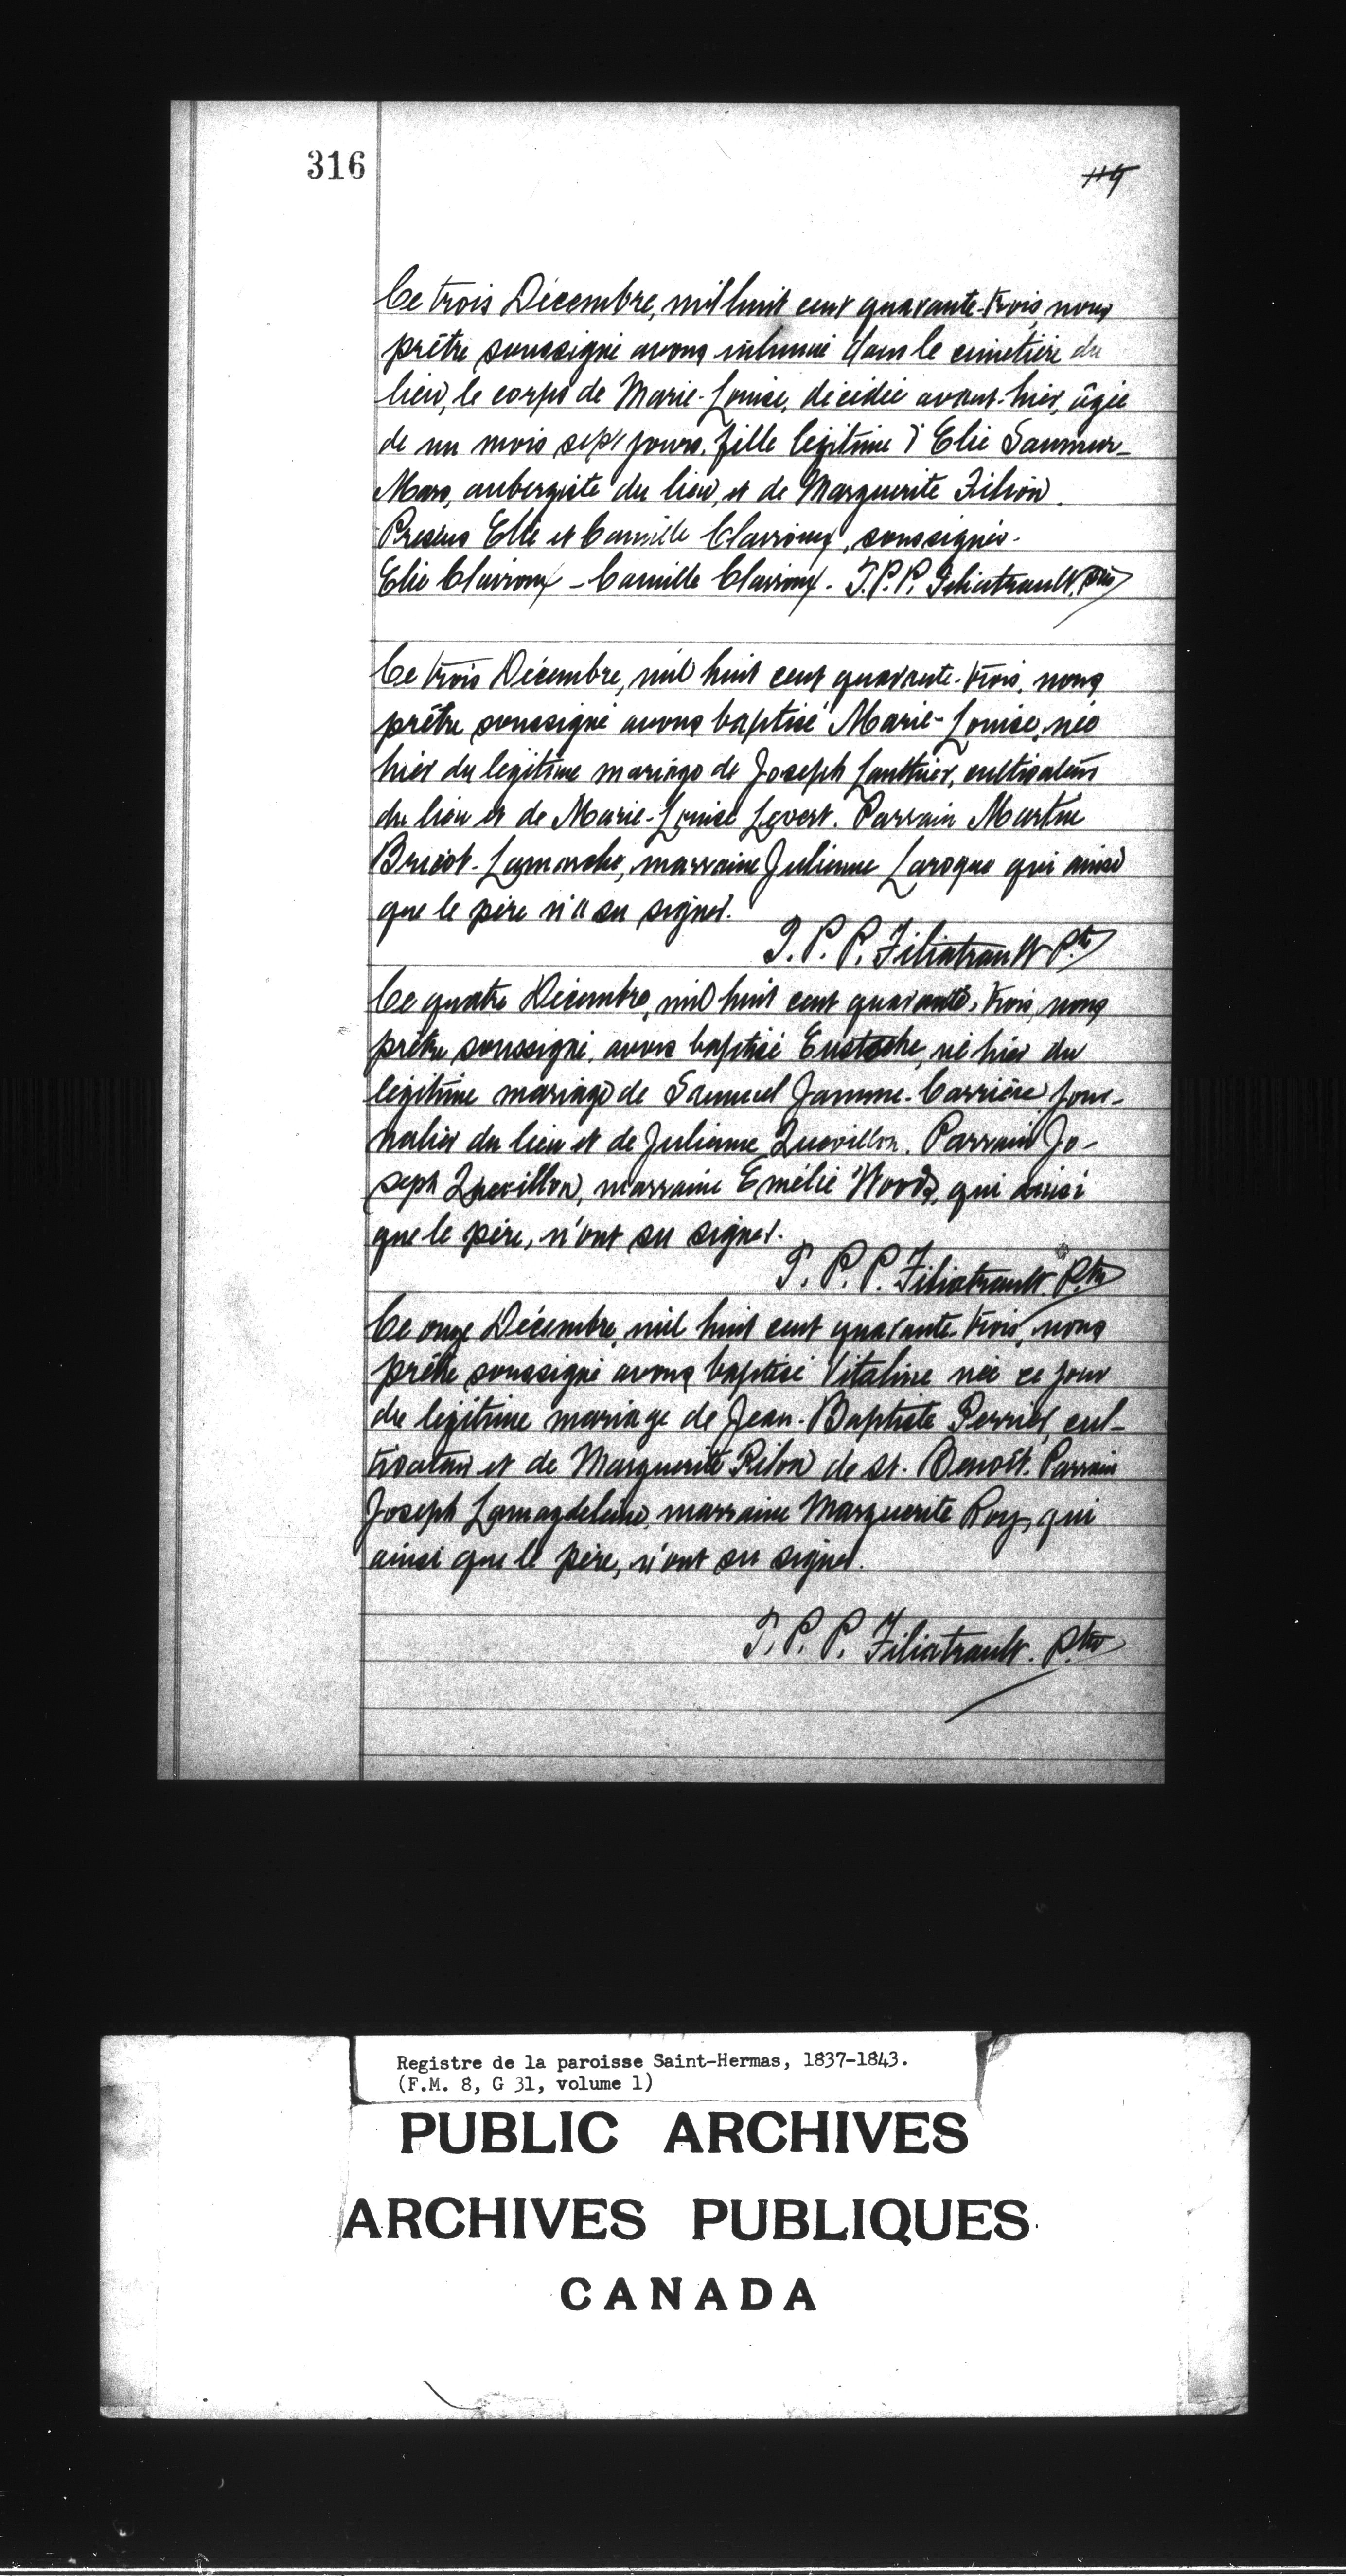 316
119
Ce trois Décembre, mil huit cent quarante-trois, nous
prêtre soussigné avons inhumé dans le cimetière du
lieu, le corps de Marie-Louise, décédée avant-hier, âgée
de un mois sept jours, fille légitime d'Elie Saumur-
Mars, aubergiste du lieu, et de Marguerite Filion.
Présens Elie et Camille Clairoux, soussignés.
Elie Clairoux - Camille Clairoux. T.P.P. Filiatrault, Ptre
Ce trois Décembre, mil huit cent quarante-trois, nous
prêtre soussigné avons baptisé Marie-Louise, née
hier du légitime mariage de Joseph Lauthier, cultivateur
du lieu et de Marie-Louise Levert. Parrain Martin
Bricot-Lamarche, marraine Julienne Laroque qui ainsi
que le père n'a su signer.
T. P. P. Filiatrault Ptre
Ce quatre Décembre, mil huit cent quarante-trois, nous
prêtre soussigné, avons baptisé Eustache, né hier du
légitime mariage de Samuel Jamme-Carrière jour-
nalier du lieu et de Julienne Quevillon. Parrain Jo-
seph Quevillon, marraine Emélie Woods, qui ainsi
que le père, n'ont su signer.
T. P. P. Filiatrault. Ptre
Ce onze Décembre, mil huit cent quarante-trois, nous
prêtre soussigné avons baptisé Vitaline née ce jour
du légitime mariage de Jean-Baptiste Perrier, cul-
tivateur et de Marguerite Pilon de St. Benoît. Parrain
Joseph Lamagdeleine, marraine Marguerite Roy, qui
ainsi que le père, n'ont su signer.
T. P. P. Filiatrault. Ptre
Registre de la paroisse Saint-Hermas, 1837-1843.
(F.M. 8, G 31, volume 1)
PUBLIC ARCHIVES
ARCHIVES PUBLIQUES
CANADA